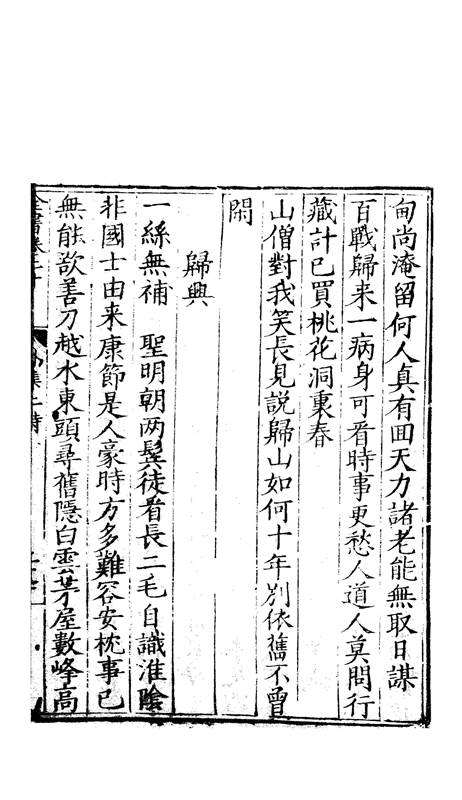 甸尚淹留何人真有囬天力諸老能無取日謀
百戰歸来一病身可看時事更愁人道人莫問行
藏計已買桃花洞裏春
山僧對我笑長見說歸山如何十年別依舊不曾
閑
歸興
一絲無補　聖明朝两鬓徒看長二毛自識淮陰
非國士由来康節是人豪時方多難容安枕事已
無能欲善刀越水東頭尋舊隱白雲茅屋數峰高